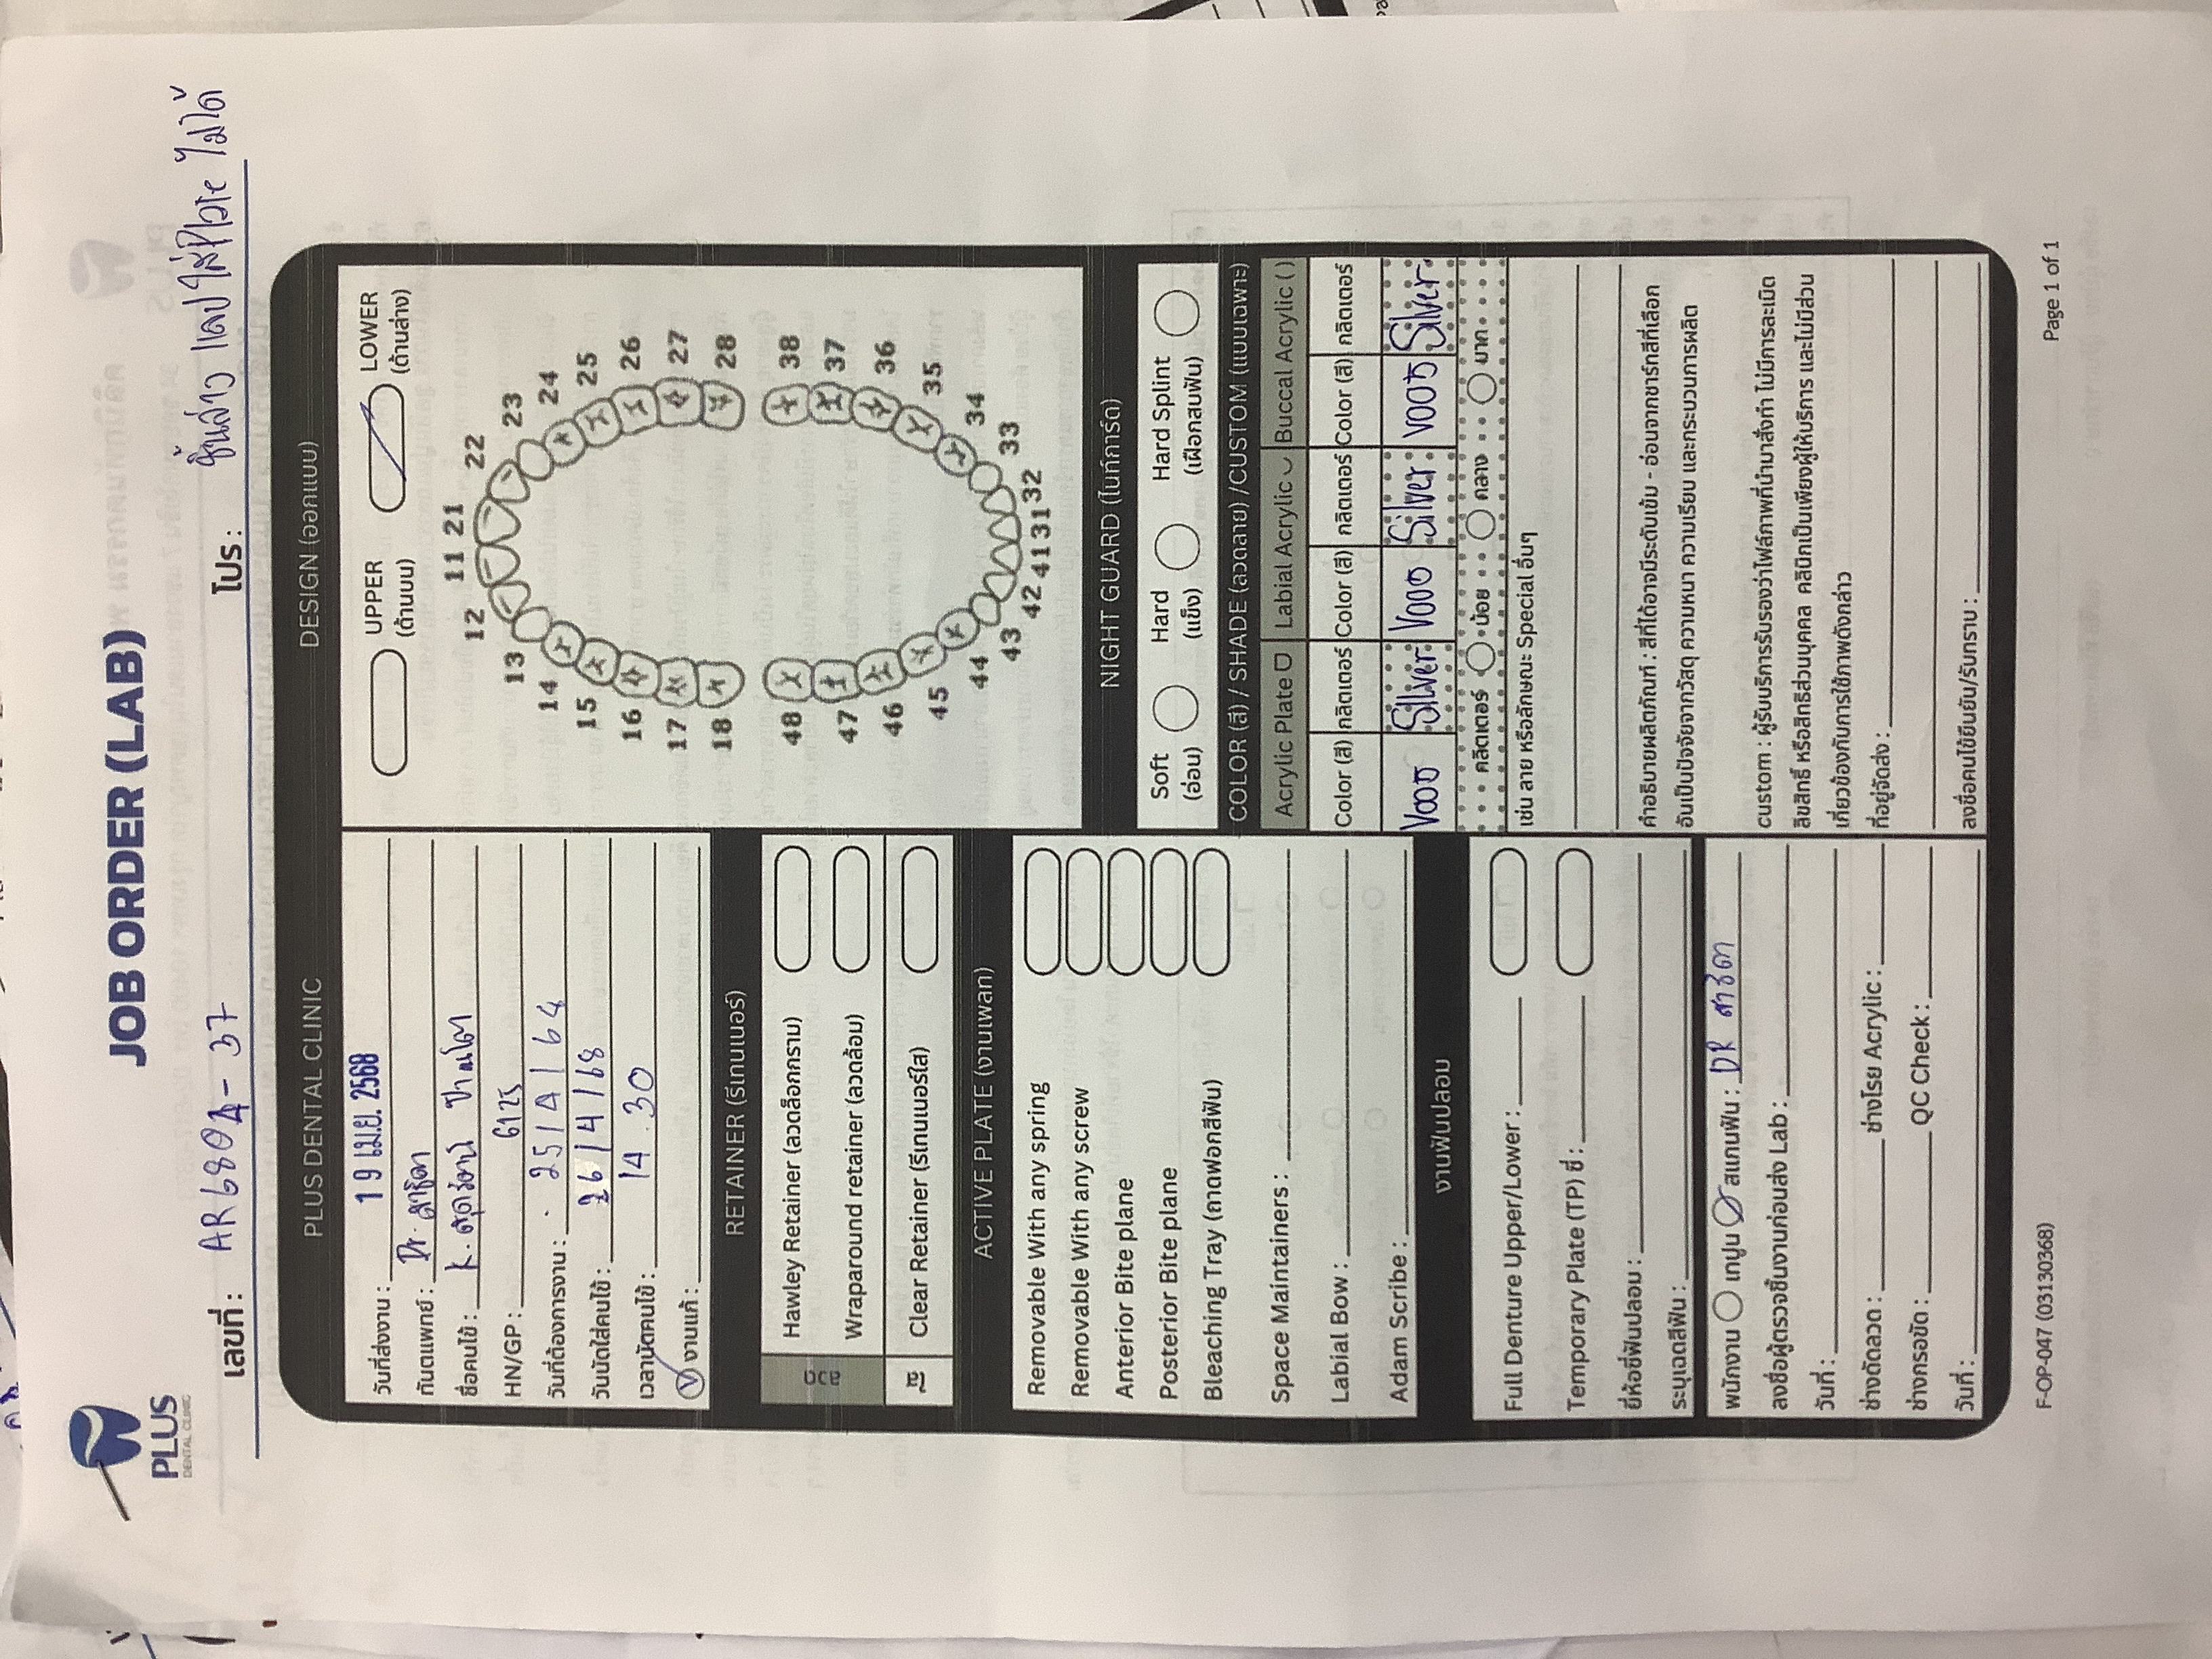 PLUS
DENTAL CLINIC
JOB ORDER (LAB)
เลขที่ : AR6804-37
โปร : ชิ้นล่าง แลป ใส่ Plate ไม่ได้
PLUS DENTAL CLINIC
วันที่ส่งงาน : 19 เม.ย. 2568
ทันตแพทย์ : Dr. สาธิดา
ชื่อคนไข้ : K.
HN/GP : 6125
วันที่ต้องการงาน : 25/4/68
วันนัดใส่คนไข้ : 26/4/68
เวลานัดคนไข้ : 14.30
งานแก้ :
RETAINER (รีเทนเนอร์)
ลวด
Hawley Retainer (ลวดล็อกกราม)
Wraparound retainer (ลวดล้อม)
ใส
Clear Retainer (รีเทนเนอร์ใส)
ACTIVE PLATE (งานเพลท)
Removable With any spring
Removable With any screw
Anterior Bite plane
Posterior Bite plane
Bleaching Tray (ถาดฟอกสีฟัน)
Space Maintainers :
Labial Bow :
Adam Scribe :
งานฟันปลอม
Full Denture Upper/Lower :
Temporary Plate (TP) ซี่ :
ยี่ห้อซี่ฟันปลอม :
ระบุเฉดสีฟัน :
พนักงาน เทปูน สแกนฟัน : DR สาธิดา
ลงชื่อผู้ตรวจชิ้นงานก่อนส่ง Lab :
วันที่ :
ช่างดัดลวด : ช่างโรย Acrylic :
ช่างกรอขัด : QC Check :
วันที่ :
DESIGN (ออกแบบ)
UPPER LOWER
(ด้านบน) (ด้านล่าง)
11 21
12 22
13 23
14 24
15 25
16 26
17 27
18 28
48 38
47 37
46 36
45 35
44 34
43 33
42 41 31 32
NIGHT GUARD (ไนท์การ์ด)
Soft Hard Hard Splint
(อ่อน) (แข็ง) (เฝือกสบฟัน)
COLOR (สี) / SHADE (ลวดลาย) /CUSTOM (แบบเฉพาะ)
Acrylic Plate Labial Acrylic Buccal Acrylic ( )
Color (สี) กลิตเตอร์ Color (สี) กลิตเตอร์ Color (สี) กลิตเตอร์
V005 Silver V005 Silver V005 Silver
คลิตเตอร์ น้อย กลาง มาก
เช่น ลาย หรือลักษณะ Special อื่นๆ
คำอธิบายผลิตภัณฑ์ : สีที่ได้อาจมีระดับเข้ม - อ่อนจากชาร์ทสีที่เลือก
อันเป็นปัจจัยจากวัสดุ ความหนา ความเรียบ และกระบวนการผลิต
custom : ผู้รับบริการรับรองว่าไฟล์ภาพที่นำมาสั่งทำ ไม่มีการละเมิด
ลิขสิทธิ์ หรือสิทธิส่วนบุคคล คลินิกเป็นเพียงผู้ให้บริการ และไม่มีส่วน
เกี่ยวข้องกับการใช้ภาพดังกล่าว
ที่อยู่จัดส่ง :
ลงชื่อคนไข้ยืนยัน/รับทราบ :
F-OP-047 (03130368)
Page 1 of 1